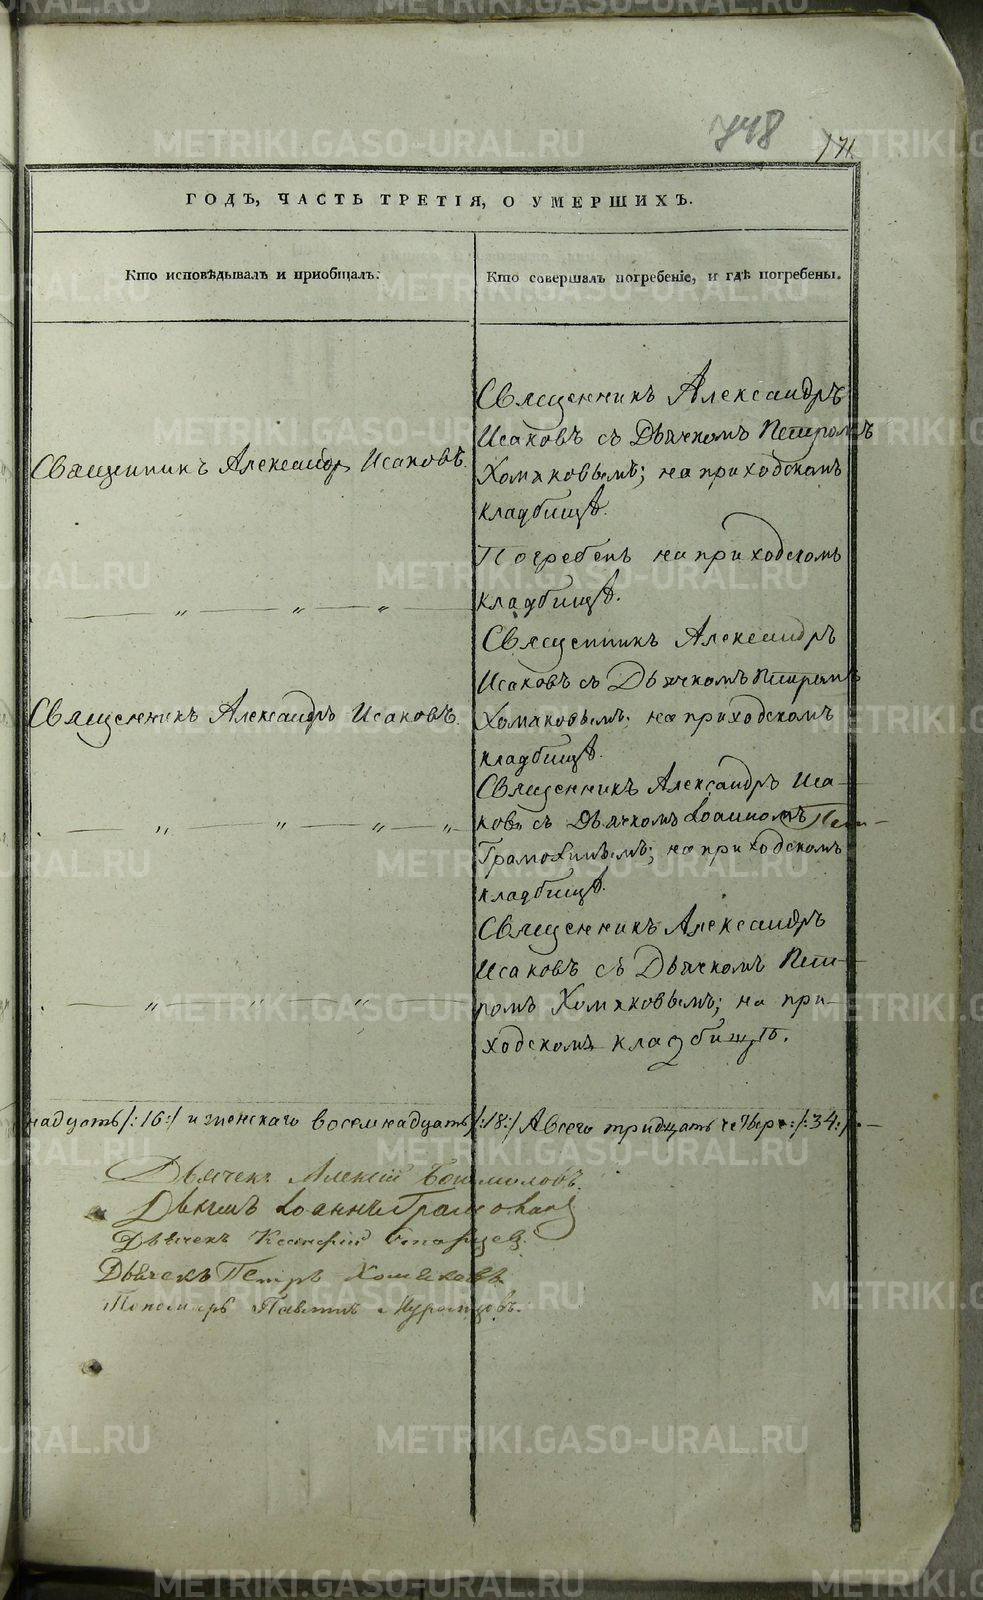 748
171
ГОДЪ, ЧАСТЬ ТРЕТІЯ, О УМЕРШИХЪ.
Кто исповѣдывалъ и приобщалъ.
Кто совершалъ погребеніе, и гдѣ погребены.
Священникъ Александръ Исаковъ.
Священникъ Александръ
Исаковъ съ Дьячкомъ Петромъ
Хомяковымъ; на приходскомъ
кладбищѣ.
— „ — „ — „ —
Погребенъ на приходскомъ
кладбищѣ.
Священникъ Александръ Исаковъ.
Священникъ Александръ
Исаковъ съ Дьячкомъ Петромъ
Хомяковымъ; на приходскомъ
кладбищѣ.
— „ — „ — „ — „
Священникъ Александръ Иса-
ковъ съ Дьячкомъ Іоанномъ
Грамохинымъ; на приходскомъ
кладбищѣ.
— „ — „ — „ —
Священникъ Александръ
Исаковъ съ Дьячкомъ Пет-
ромъ Хомяковымъ; на при-
ходскомъ кладбищѣ.
надцать /:16:/ и женскаго восемнадцать /:18:/ А всего тридцать четыре /:34:/. —
Дьячекъ Алексій Богомоловъ.
Іоаннъ
Дьячекъ
Дьячекъ Петръ Хомяковъ.
Пономарь Муромцовъ.
METRIKI.GASO-URAL.RU